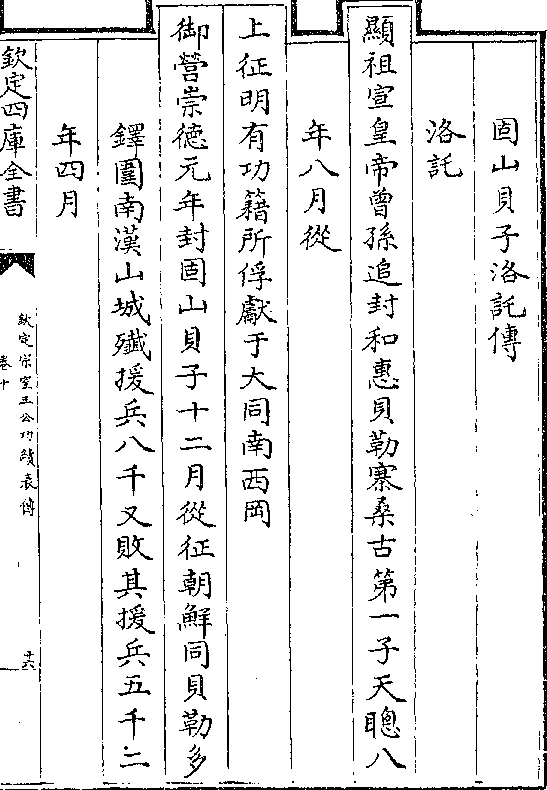 固山貝子洛託傳
洛託
顯祖宣皇帝曾孫追封和惠貝勒寨桑古第一子天聰八
年八月從
上征明有功籍所俘獻于大同南西岡
御營崇德元年封固山貝子十二月從征朝鮮同貝勒多
鐸圍南漢山城殲援兵八千又敗其援兵五千二
年四月
欽定四庫全書
欽定宗室王公功績表傳
卷十
十六